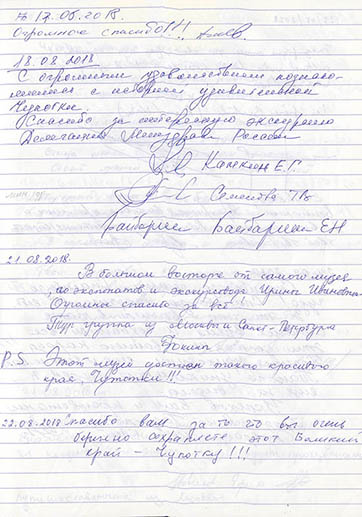 17.08.2018.
Огромное спасибо!!!
18.08.2018
С огромным удовольствием познако-
мились с историей удивительной
Чукотки.
Спасибо за интересную экскурсию
Делегация Минздрава России
Капекин Е.Г.
Семенова
Байбарин Байбарин ЕН
21.08.2018.
В большом восторге от самого музея,
экспонатов и экскурсовода Ирины Ивановны.
Огромное спасибо за всё!
Тур группа из Москвы и Санкт-Петербурга
P.S. Этот музей достоин такого красивого
края, Чукотки!!!
22.08.2018 Спасибо вам за то что вы очень
бережно сохраняете этот Великий
край - Чукотку!!!